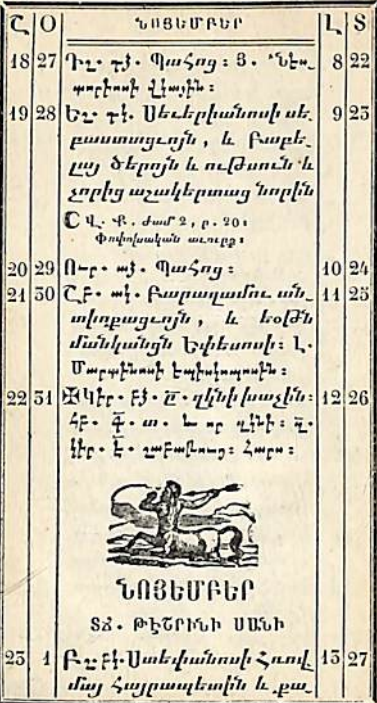 Շ Օ ՆՈՅԵՄԲԵՐ Լ Տ
18 27 Դշ. դձ. Պահոց : Յ. Նէս 8 22
տորիոսի վկային :
19 28 Եշ. դկ. Սեւերիանոսի սե 9 23
բաստացւոյն , և Բաբե
լայ ծերոյն և ութսուն և
չորից աշակերտաց նորին
Վ. Ք. ժամ 2, ր. 20 :
Փոփոխական աւուրք :
20 29 Ուր. աձ. Պահոց : 10 24
21 30 Շբ. ակ. Բարաղամու ան 11 25
տիոքացւոյն , և եօթն
մանկանցն Եփեսոսի : Լ.
Մարտինոսի եպիսկոպոսին :
22 31 Կիր. բձ. խաչին : 12 26
Հարս :
ՆՈՅԵՄԲԵՐ
ՏՃ. ԹԷՇՐԻՆԻ ՍԱՆԻ
23 1 Բշ. բկ. Ստեփանոսի Հռով 13 27
մայ Հայրապետին և քա